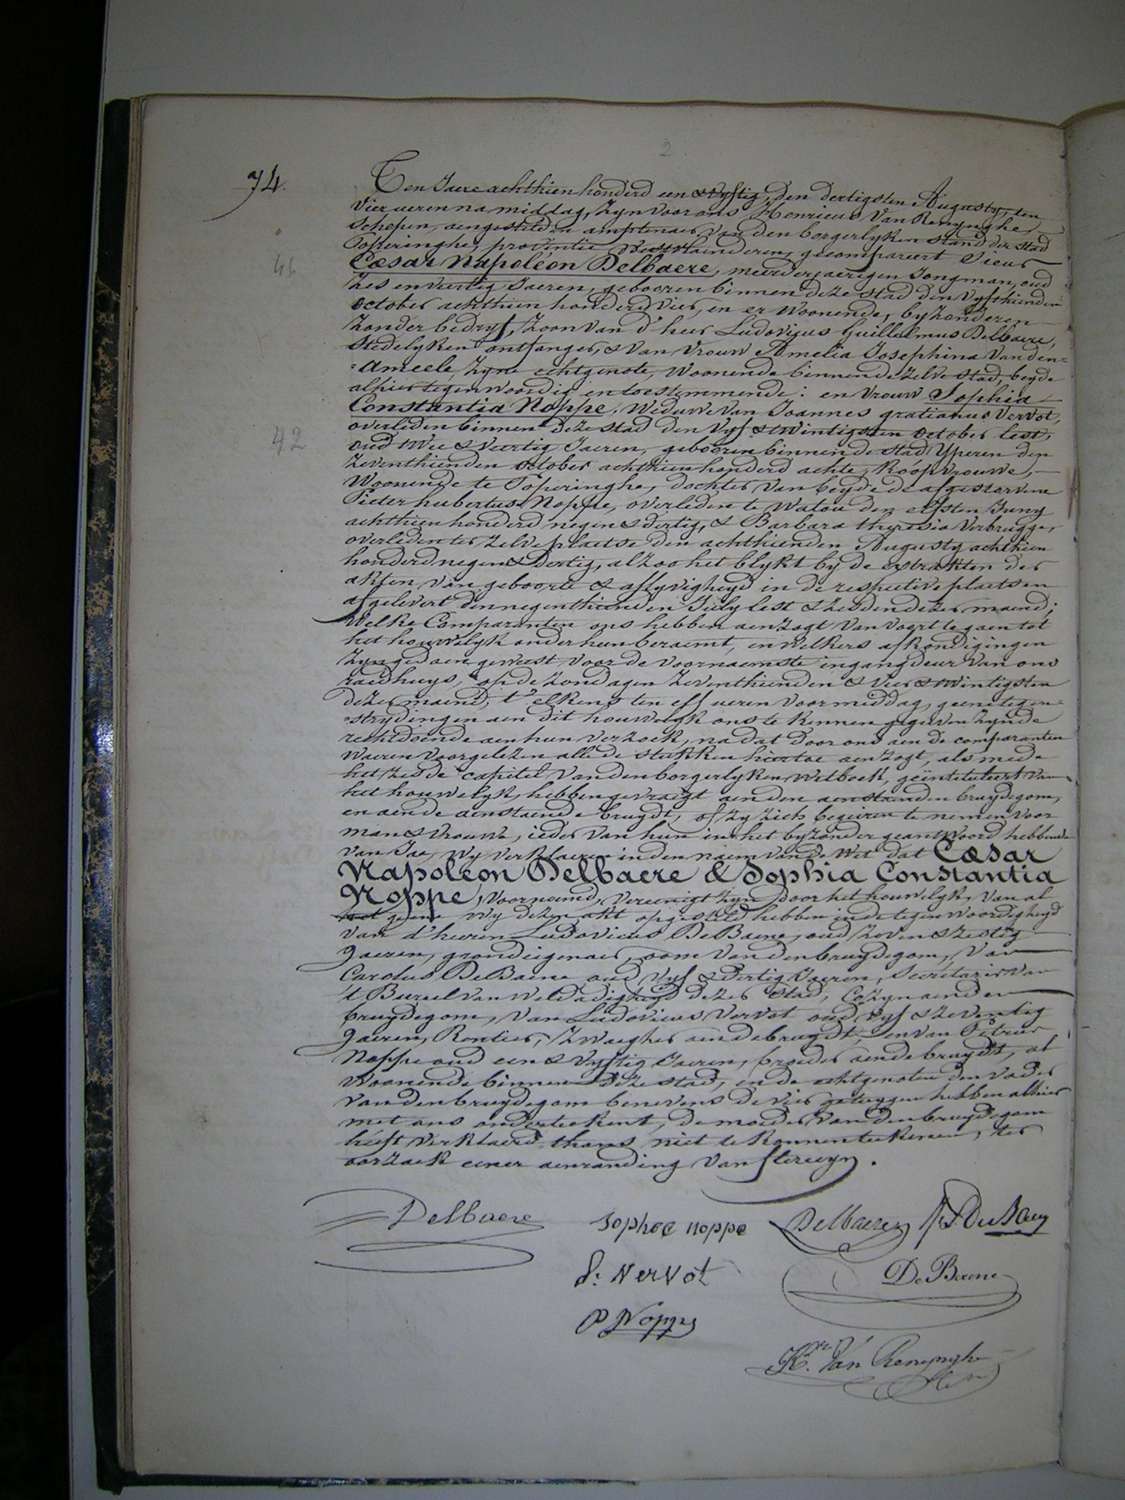 2
74.
Ten Jaere achthien honderd een & vyftig, den dertigsten Augusty, ten
vier ueren na middag, zyn voor ons Henricus Van Renynghe,
Schepen, aengestelden amptenaer van den borgerlyken stand der stad
Poperinghe, provintie Westvlaenderen, gecompareert Sieur
46
Cæsar Napoléon Delbaere, meerderjaerigen Jongman, oud
zes en veertig Jaeren, gebooren binnen deze stad den vyfthienden
october achthien honderd vier, en er woonende, byzonderen
zonder bedryf, zoon van d'heer Ludovicus Guillelmus Delbaere,
stedelyken ontfanger, & van vrouw Amelia Josephina Vanden-
-Ameele, zyne echtgenote, woonende binnen de zelve stad, beyde
alhier tegenwoordig en toestemmende: en vrouw Sophia
Constantia Noppe, weduwe van Joannes gratianus Vervot,
overleden binnen deze stad den vyf & twintigsten october lest,
42
oud twee & veertig Jaeren, gebooren binnen de stad Yperen den
zeventhienden october achthien honderd acht, Koopvrouwe,
woonende te Poperinghe, dochter van beyde de afgestorvene
Pieter hubertus Noppe, overleden te Watou den elfsten Juny
achthien honderd negen & dertig, & Barbara theresia Verbrugge,
overleden ter zelve plaetse den achthienden Augusty achthien
honderd negen & dertig, alzoo het blykt by de extrakten der
akten van geboorte & aflyvigheyd in de respective plaetsen
afgelevert den negenthienden July lest & zesden dezer maend;
Welke Comparanten ons hebben aenzogt van voort te gaen tot
het houwelyk onder hun beraemt, en welkers afkondigingen
zyn gedaen geweest voor de voornaemste ingangdeur van ons
raedhuys, op de zondagen zeventhienden & vier & twintigsten
dezer maend, t' elkens ten elf ueren voormiddag, geene tegen-
-strydingen aen dit houwelyk ons te kennen gegeven zynde
rechtdoende aen hun verzoek, na dat door ons aen de comparanten
waeren voorgelezen alle de stukken hiertoe aenzogt, als mede
het zesde capitel van den borgerlyken wetboek, geïntituleert van
het houwelyk, hebben gevraegt aen den aenstaenden bruydegom,
en aen de aenstaende bruydt, of zy zich begeiren te nemen voor
man & vrouwe, ieder van hun in het byzonder geantwoord hebbende
van Jae, wy verklaeren in den naem van de wet dat Cæsar
Napoléon Delbaere & Sophia Constantia
Noppe, voornoemd, vereenigt zyn door het houwelyk, van al
het geene wy dezen akt opgesteld hebben in de tegenwoordigheyd
van d'heeren Ludovicus De Baene, oud zeven & zestig
Jaeren, grondeigenaer, oom van den bruydegom, Van
Carolus De Baene oud vyf & dertig Jaeren, Secretaris van
't Bureel van weldadigheyd dezer stad, Cozyn aen den
bruydegom, van Ludovicus Vervot oud vyf & zeventig
Jaeren, Rentier, zwaegher aen de bruydt, en van Petrus
Noppe oud een & vyftig Jaeren, broeder aen de bruydt, al
woonende binnen deze stad, en de echtgenoten den vader
van den bruydegom benevens de vier getuygen hebben alhier
met ons onderteekent, de moeder van den bruydegom
heeft verklaerd thans niet te konnen teekenen, ter
oorzaek eener aenranding van flerecyn.
Delbaere Sophie Noppe Delbaere
L: Vervot De Baene
P Noppe
Hri Van Renynghe